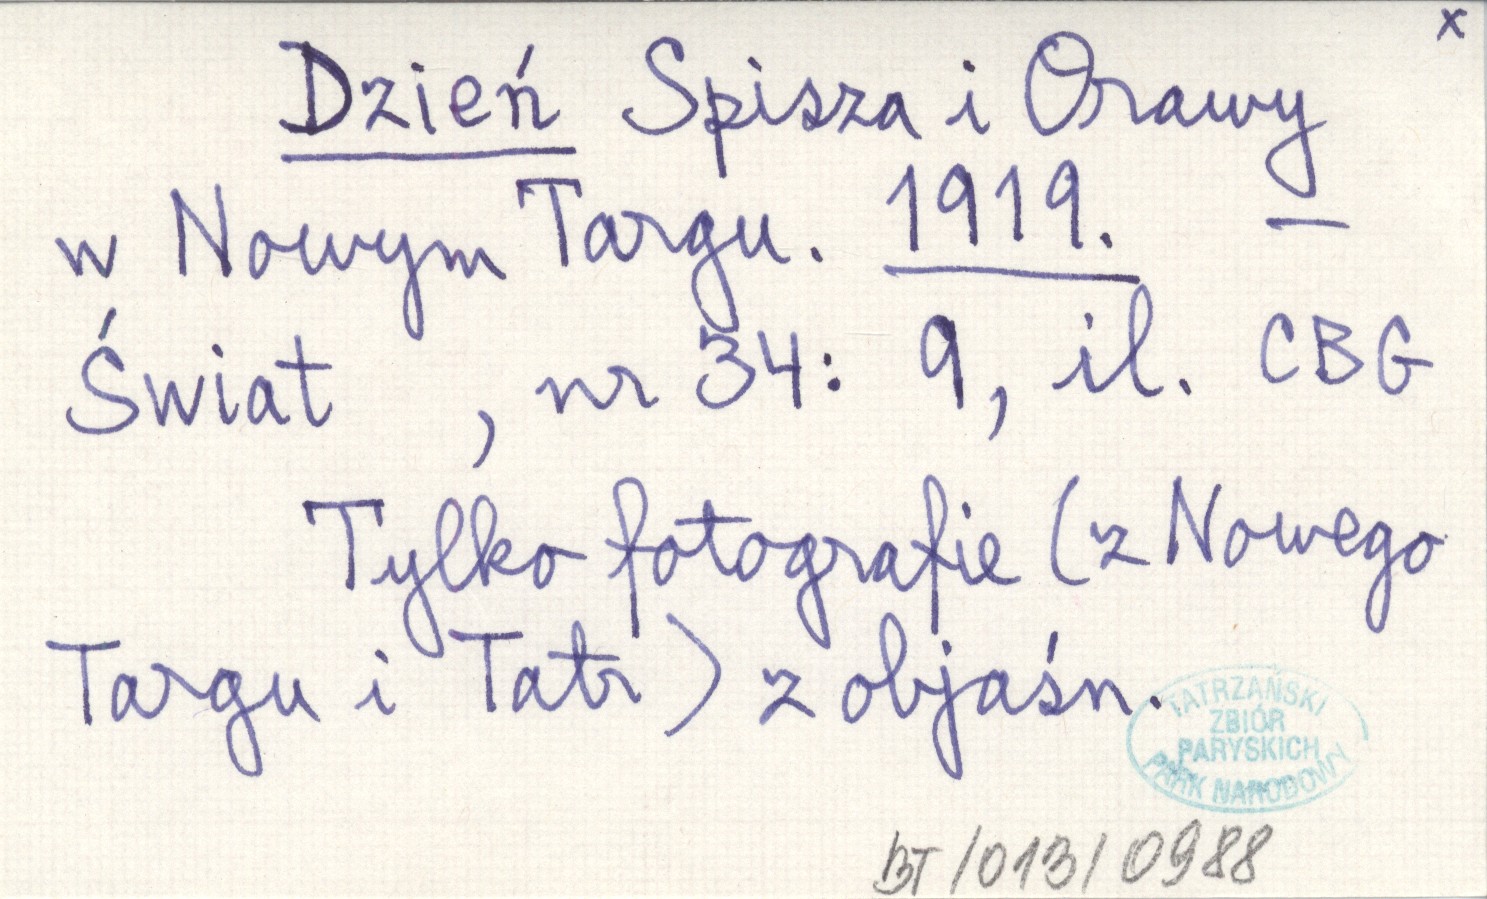 x
Dzień Spisza i Orawy
w Nowym Targu. 1919. —
Świat , nr 34: 9, il. CBG
Tylko fotografie (z Nowego
Targu i Tatr) z objaśn.
TATRZAŃSKI
ZBIÓR
PARYSKICH
PARK NARODOWY
BT/013/0988